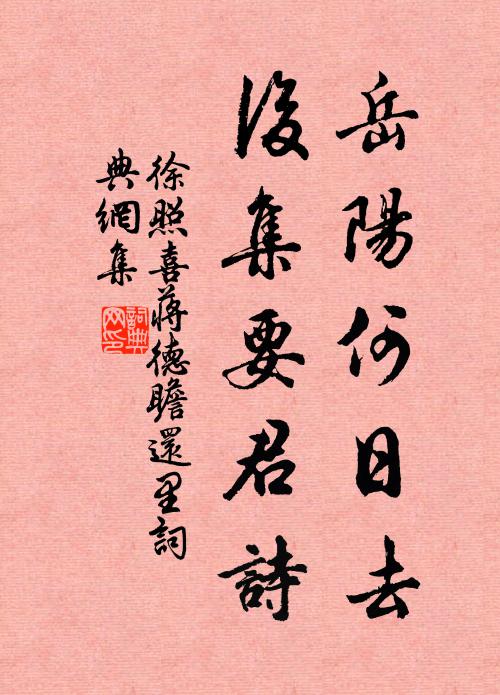 岳陽何日去
後集要君詩
徐照喜蔣德瞻還里詞
典網集
詞典網印